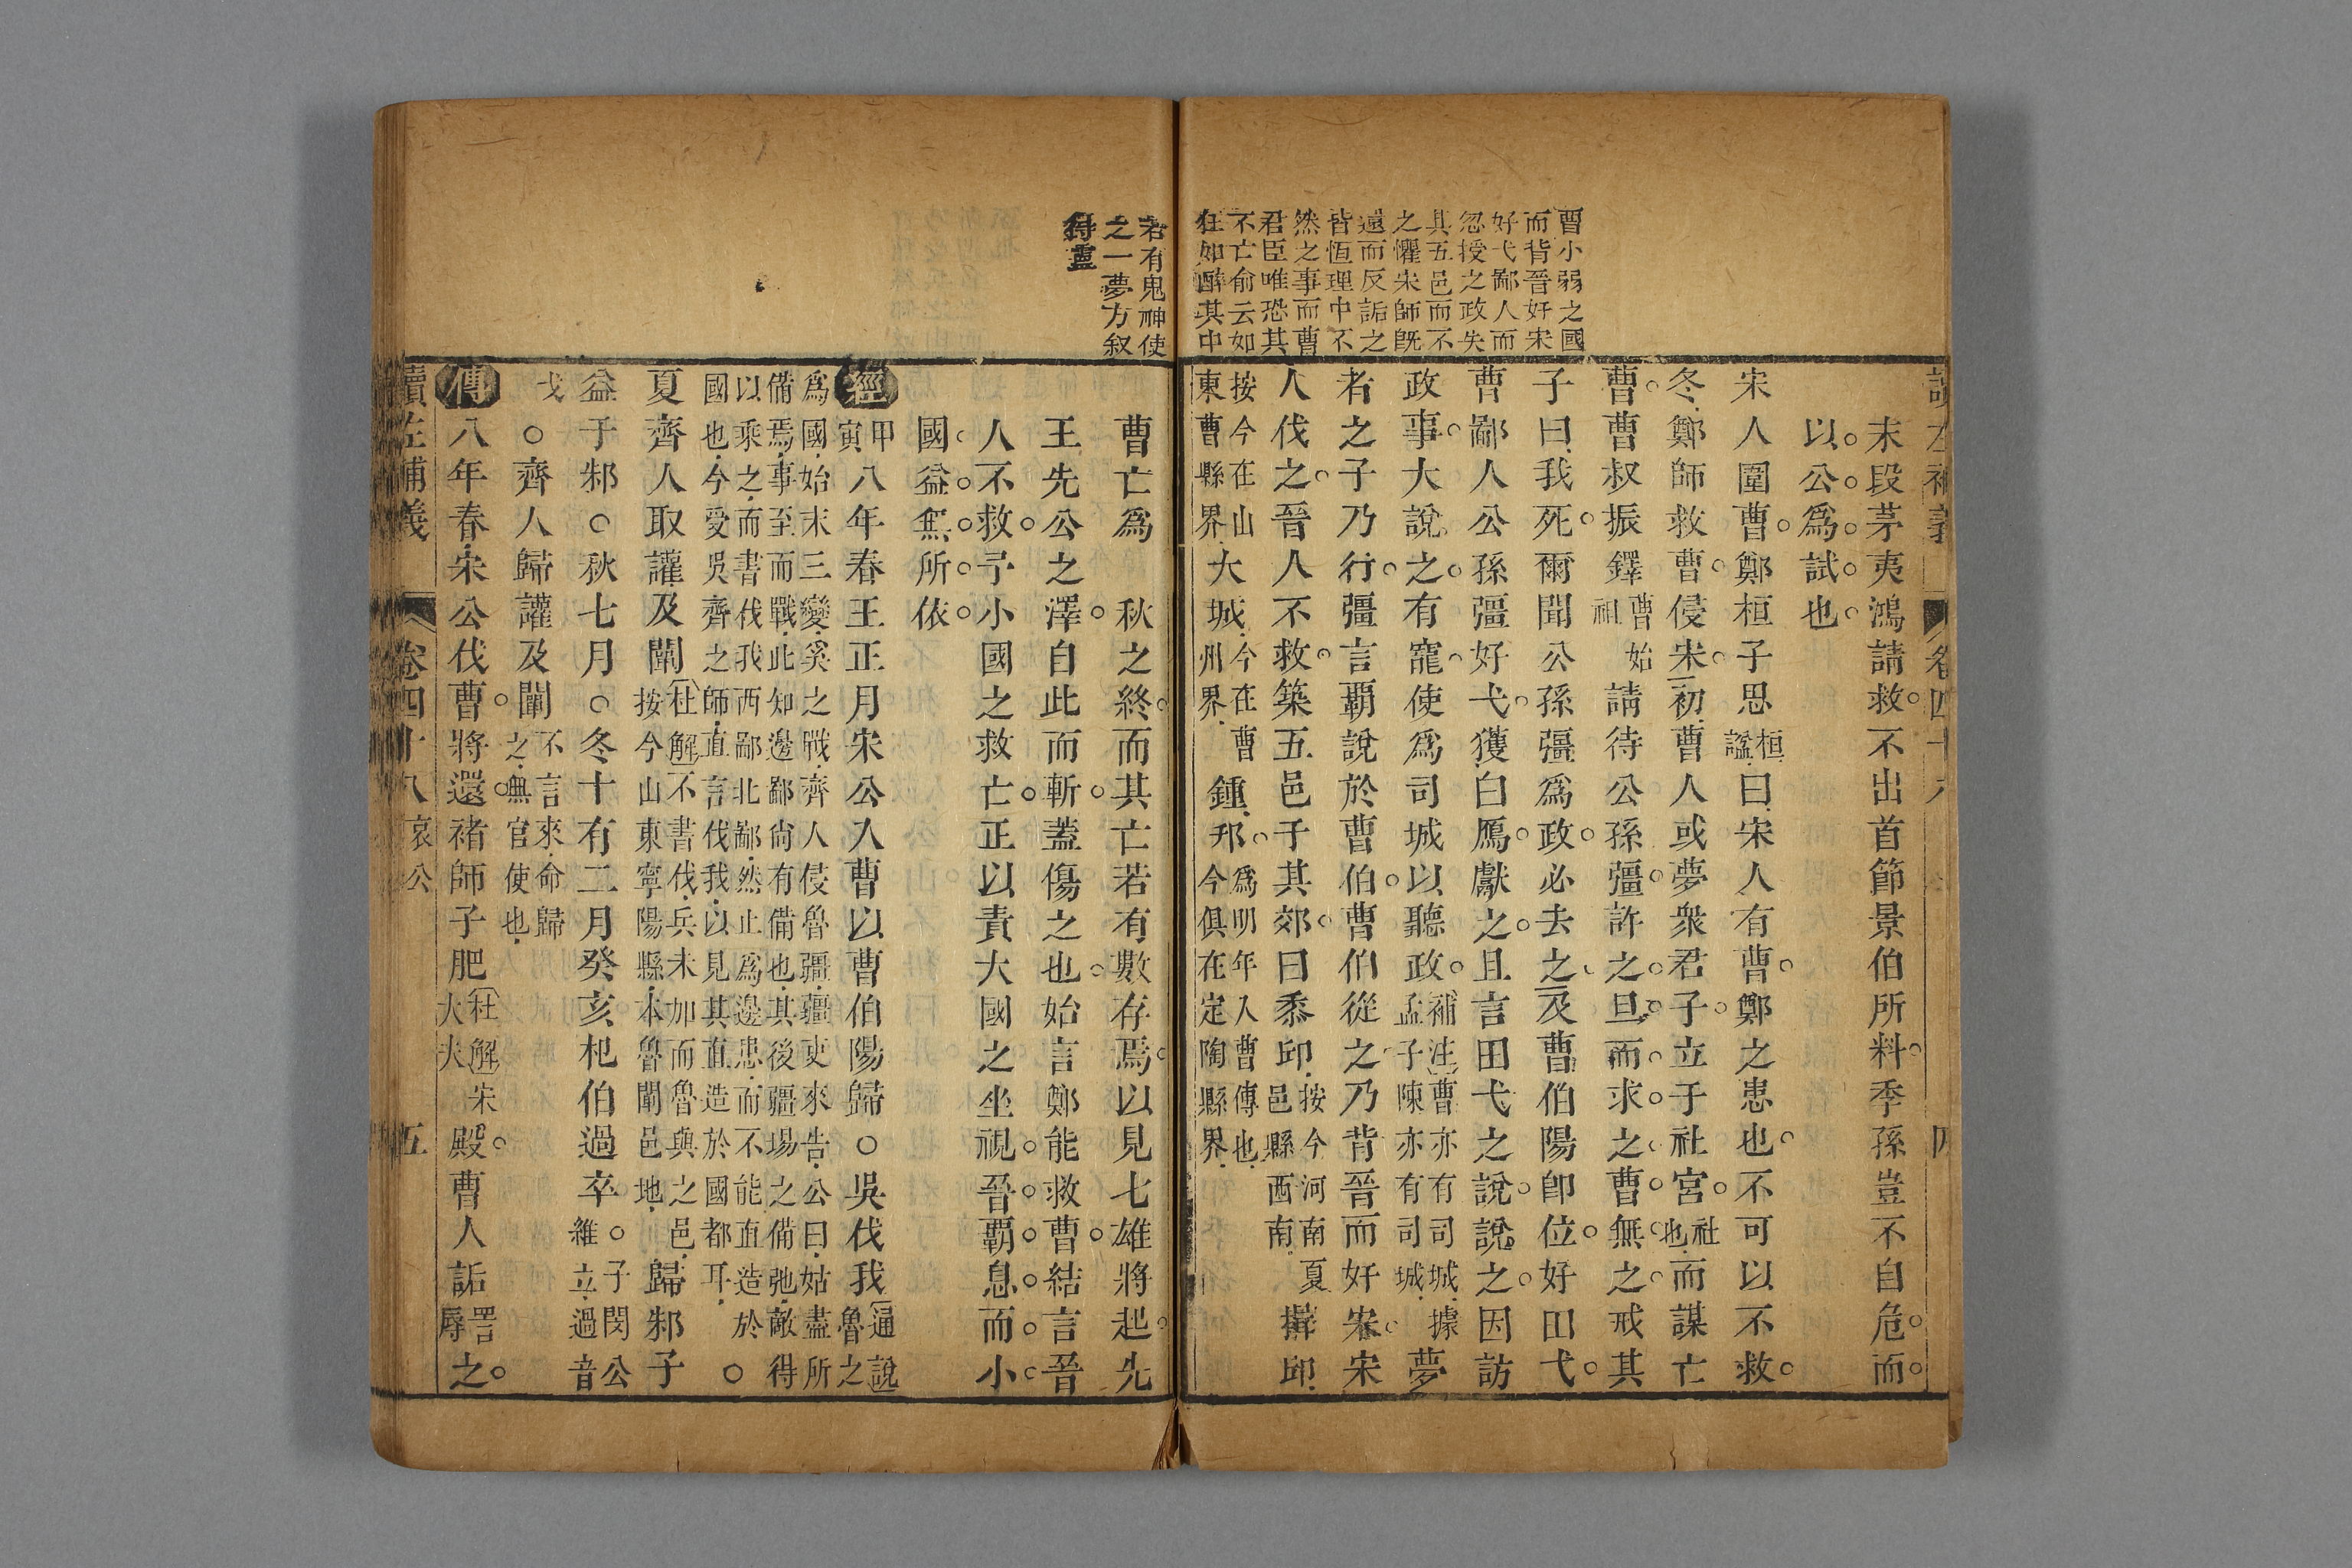 曹小弱之國
而背晉好宋
好弋鄙人而
忽授之政失
其五邑而不
之懼宋師旣
還而反詬之
皆恆理中不
然之事而曹
君臣唯恐其
不亡俞云如
狂如醉其中
末段茅夷鴻請救不出首節景伯所料季孫豈不自危而
以公爲試也
宋人圍曹鄭桓子思桓謚曰宋人有曹鄭之患也不可以不救
冬鄭師救曹侵宋初曹人或夢衆君子立于社宮社也而謀亡
曹曹叔振鐸曹始祖請待公孫彊許之旦而求之曹無之戒其
子曰我死爾聞公孫彊爲政必去之及曹伯陽卽位好田弋
曹鄙人公孫彊好弋獲白鴈獻之且言田弋之說說之因訪
政事大說之有寵使爲司城以聽政補注曹亦有司城據孟子陳亦有司城夢
者之子乃行彊言霸說於曹伯曹伯從之乃背晉而奸宋宋
人伐之晉人不救築五邑于其郊曰黍邱按今河南夏邑縣西南揖邱
按今在山東曹縣界大城今在曹州界鍾邘爲明年入曹傳也今俱在定陶縣界
若有鬼神使
之一夢方叙
得靈
曹亡爲秋之終而其亡若有數存焉以見七雄將起先
王先公之澤自此而斬蓋傷之也始言鄭能救曹結言晉
人不救予小國之救亡正以責大國之坐視晉霸息而小
國益無所依
經甲寅八年春王正月宋公入曹以曹伯陽歸○吳伐我通說魯之
爲國始末三變奚之戰齊人侵魯疆疆吏來告公曰姑盡所
備焉事至而戰此知邊鄙尙有備也其後疆埸之備弛敵得
以乘之而書伐我西鄙北鄙然止爲邊患而不能直造於
國也今愛吳齊之師直言伐我以見其直造於國都耳○
夏齊人取讙及闡杜解不書伐兵未加而魯與之邑按今山東寧陽縣本魯闡邑地歸邾子
益于邾○秋七月○冬十有二月癸亥杞伯過卒○子閔公維立過音
戈○齊人歸讙及闡不言來命歸之無官使也
傳八年春宋公伐曹將還褚師子肥杜解宋大夫殿曹人詬詈辱之
讀左補義 卷四十八 哀公 五